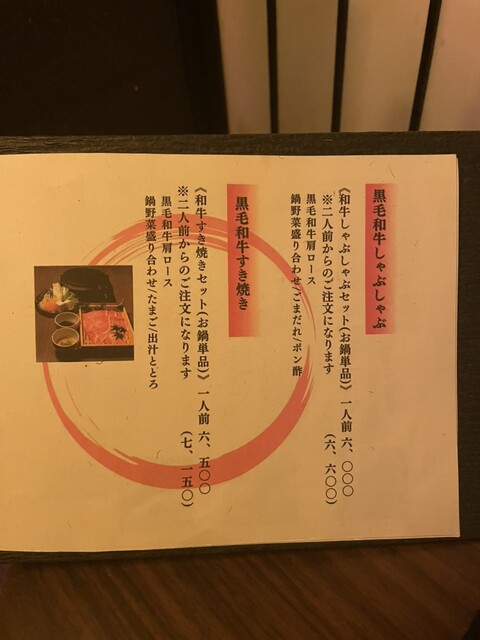 黒毛和牛しゃぶしゃぶ
《和牛しゃぶしゃぶセット(お鍋単品)》 一人前 六、〇〇〇
※二人前からのご注文になります (六、六〇〇)
黒毛和牛肩ロース
鍋野菜盛り合わせ/ごまだれ/ポン酢
黒毛和牛すき焼き
《和牛すき焼きセット(お鍋単品)》 一人前 六、五〇〇
※二人前からのご注文になります (七、一五〇)
黒毛和牛肩ロース
鍋野菜盛り合わせ/たまご/出汁とろろ